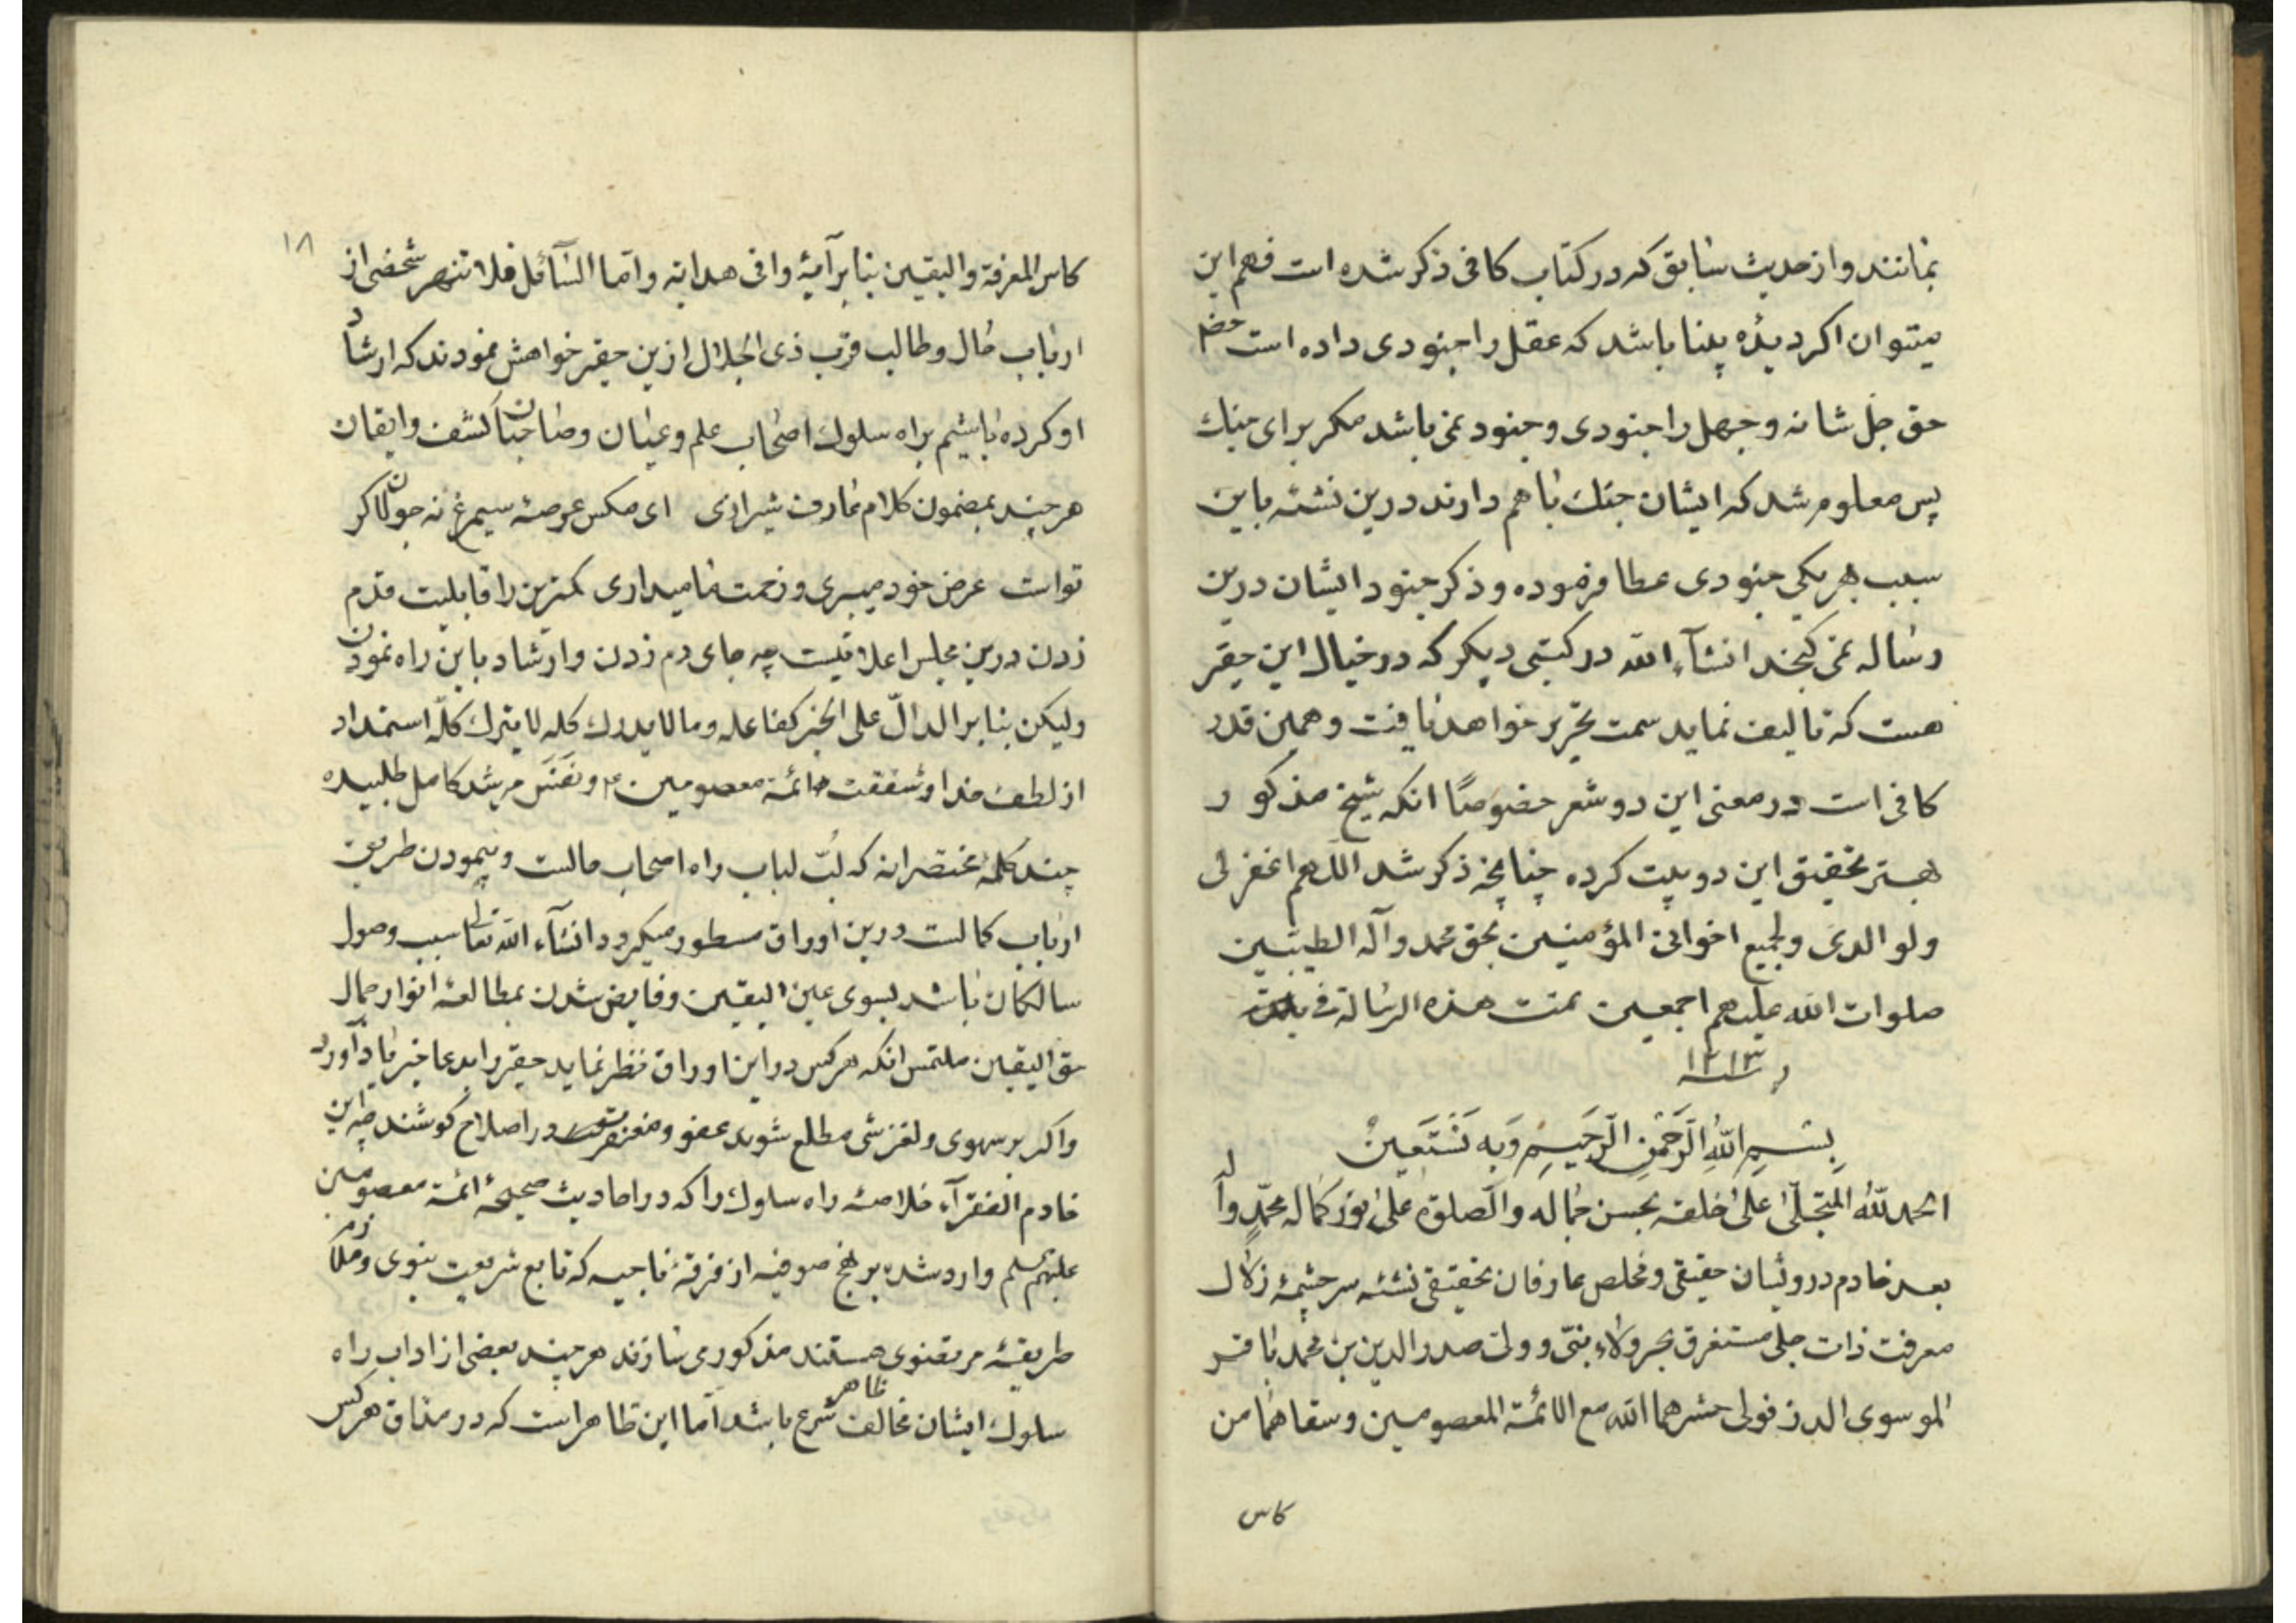 نمانند و از حدیث سابق که در کتاب کافی ذکر شده است فهم این
میتوان اکر دیدۀ بینا باشد که عقل را جنودی داده است حضرة
حق جل شانه و جهل را جنودی و جنود نمی باشد مکر برای جنك
پس معلوم شد که ایشان جنك با هم دارند درین نشئه باین
سبب بهر یکی جنودی عطا فرموده و ذکر جنود ایشان درین
رساله نمی کنجد انشآء الله در کتبی دیکر که در خیال این حقیر
هست که تالیف نماید سمت تحریر خواهد یافت و همین قدر
کافی است در معنی این دو شعر خصوصًا انکه شیخ مذکور
بهتر تحقیق این دو بیت کرده چنانچه ذکر شد اللهم اغفر لی
ولوالدی ولجمیع اخوانی المؤمنین بحق محمد وآله الطیبین
صلوات الله علیهم اجمعین تمت هذه الرسالة فی
سنه ۱۳۱۳
بِسْمِ اللهِ الرَّحْمٰنِ الرَّحیمِ وَبِه نَسْتَعینُ
الحمد للّٰه المتجلّی علیٰ خلقه بحسن جماله والصلوة علیٰ نور کماله محمّدٍ وآله
بعد خادم درویشان حقیقی و مخلص عارفان تحقیقی نشئه سرچشمۀ زلال
معرفت ذات جلی مستغرق بحر ولاء نبیّ و ولی صدر الدین بن محمد باقر
الموسوی الدزفولی حشرهما الله مع الائمة المعصومین وسقاهما من
کاس
۱۸
کاس المعرفة والیقین بنا بر آیۀ وافی هدایه واما السآئل فلا تنهر شخصی از
ارباب حال و طالب قرب ذی الجلال ازین حقیر خواهش نمودند که ارشاد
او کرده باشیم براه سلوك اصحاب علم و عیان و صاحبان کشف و ایقان
هر چند بمضمون کلام عارف شیرازی ای مکس عرصۀ سیمرغ نه جولانکه
تو است عرض خود میبری و زحمت ما میداری کمترین را قابلیت قدم
زدن درین مجلس اعلا نیست چه جای دم زدن و ارشاد باین راه نمودن
ولیکن بنا بر الدالّ علی الخیر کفاعله و ما لا یدرك کله لا یترك کلّه استمداد
از لطف خدا و شفقت ائمه معصومین ۴ و نَفَسَ مرشد کامل طلبیده
چند کلمۀ مختصرانه که لُبّ لباب راه اصحاب حالست و پیمودن طریق
ارباب کمالست درین اوراق مسطور میکردد انشآء الله تعالی سبب وصول
سالکان باشد بسوی عین الیقین و فایض شدن بمطالعۀ انوار جمال
حق الیقین ملتمس انکه هر کس در این اوراق نظر نماید حقیر را بدعا خیر یاد آورد
و اکر بر سهوی و لغزشی مطلع شوند عفو و در اصلاح کوشند چه این
خادم الفقرآء خلاصۀ راه سلوك را که در احادیث صحیحۀ ائمۀ معصومین
علیهم السلم وارد شده بر نهج صوفیه از فرقۀ ناجیه که تابع شریعت نبوی و ملازم
طریقۀ مرتضوی هستند مذکور می سازند هر چند بعضی از اداب راه
سلوك ایشان مخالف ظاهر شرع باشد اما این ظاهر است که در مذاق هر کس